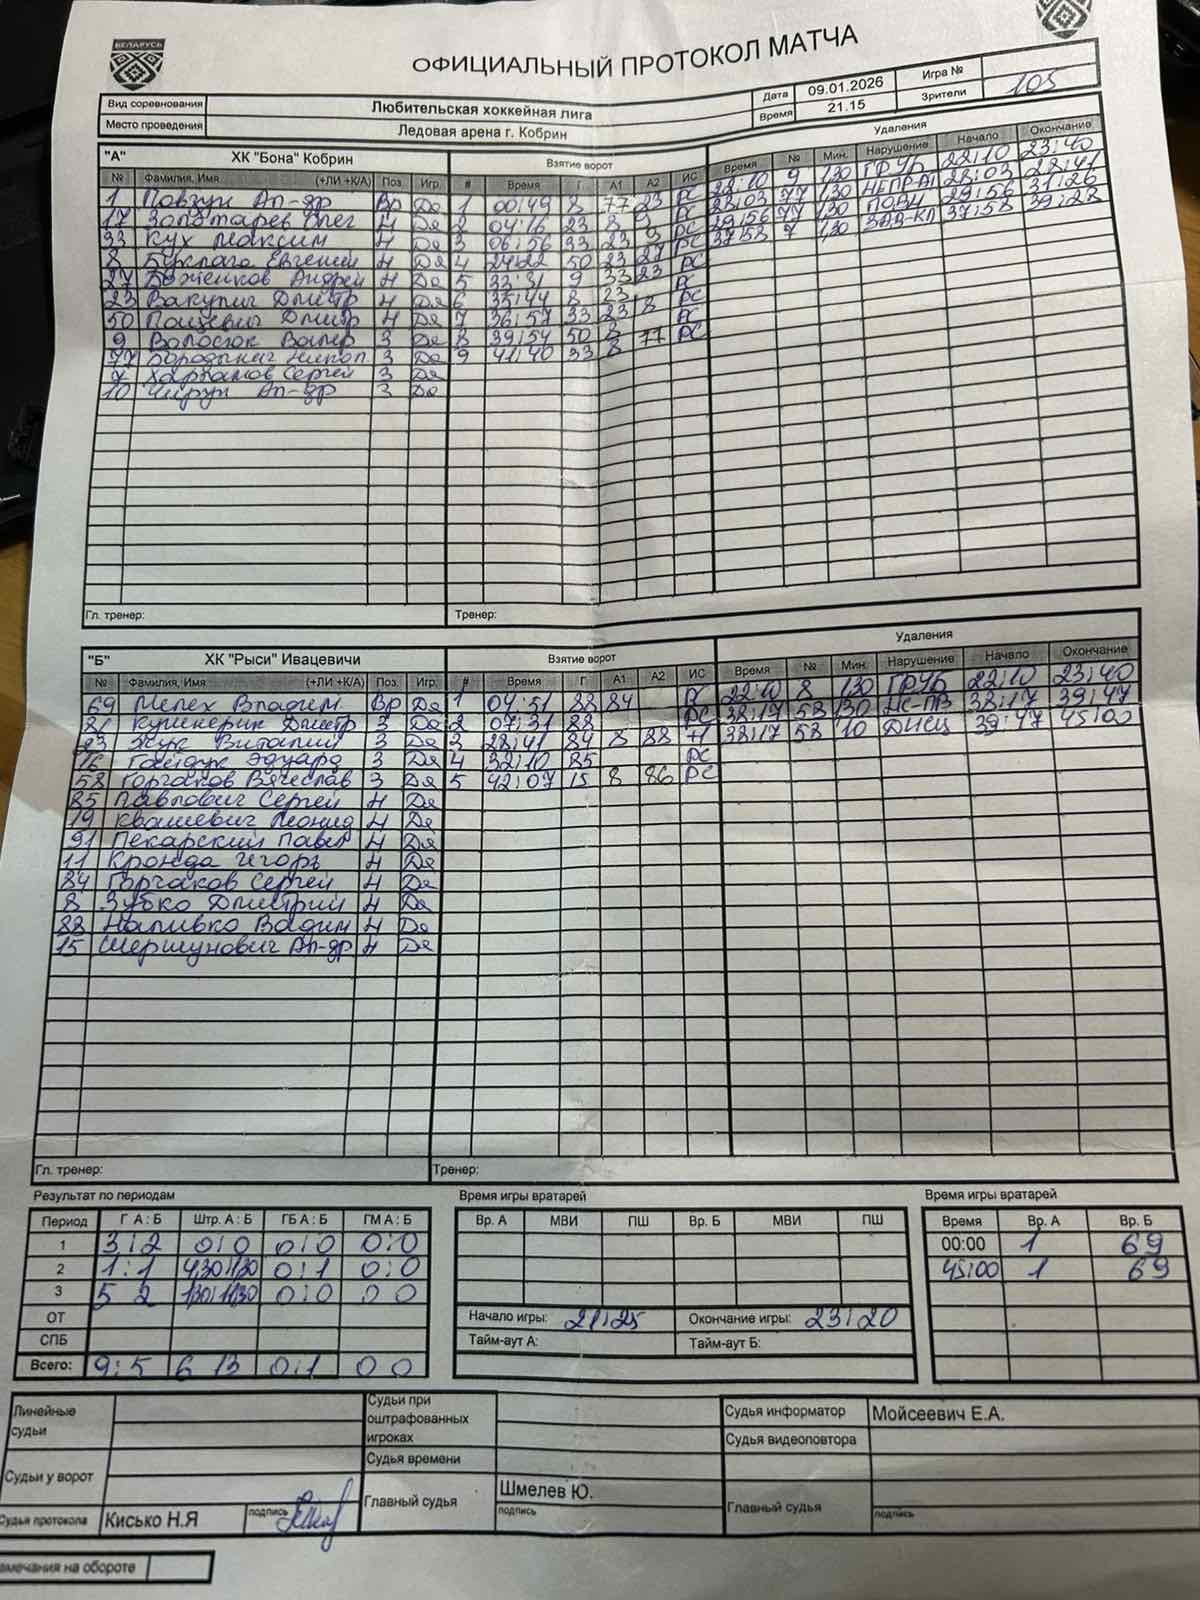 БЕЛАРУСЬ
ОФИЦИАЛЬНЫЙ ПРОТОКОЛ МАТЧА
Вид соревнования Любительская хоккейная лига Дата 09.01.2026 Игра №
Место проведения Ледовая арена г. Кобрин Время 21.15 Зрители 105
"А" ХК "Бона" Кобрин Взятие ворот Удаления
№ Фамилия, Имя (+ЛИ +К/А) Поз. Игр. # Время Г А1 А2 ИС Время № Мин. Нарушение Начало Окончание
1 Повзун Ал-др Вр Да 1 00:49 8 77 23 РС 22:10 9 1,30 ГРУБ 22:10 23:40
17 Золотарев Олег Н Да 2 04:16 23 8 9 РС 28:03 77 1,30 НЕПР-АТ 28:03 28:41
33 Кух Максим Н Да 3 06:56 33 23 9 РС 29:56 77 1,30 29:56 31:26
8 Евгений Н Да 4 24:22 50 23 27 РС 37:58 7 1,30 ЗАД-КЛ 37:58 39:28
27 Боженков Андрей Н Да 5 33:31 9 33 23 РС
23 Вакулич Дмитр Н Да 6 35:44 8 23 РС
50 Пацевич Дмитр Н Да 7 36:57 33 23 8 РС
9 Волосюк Валер З Да 8 39:54 50 8 77 РС
77 З Да 9 41:40 33 8
7 Харламов Сергей З Да
10 Чирук Ал-др З Да
Гл. тренер: Тренер:
"Б" ХК "Рыси" Ивацевичи Взятие ворот Удаления
№ Фамилия, Имя (+ЛИ +К/А) Поз. Игр. # Время Г А1 А2 ИС Время № Мин. Нарушение Начало Окончание
69 Мелех Владим Вр Да 1 04:51 88 84 РС 22:10 8 1,30 ГРУБ 22:10 23:40
Кушнерик Дмитр З Да 2 07:31 88 РС 38:17 58 1,30 38:17 39:47
Жук Виталий З Да 3 28:41 84 8 88 +1 38:17 58 10 ДИСЦ 39:47 45:00
16 Гайдук Эдуард З Да 4 32:10 85 РС
58 Горчаков Вячеслав З Да 5 42:07 15 8 86 РС
85 Павлович Сергей Н Да
19 Квашевич Леонид Н Да
91 Пекарский Павел Н Да
11 Кронда Игорь Н Да
84 Горчаков Сергей Н Да
8 Зубко Дмитрий Н Да
88 Наливко Вадим Н Да
15 Шершунович Ал-др Н Да
Гл. тренер: Тренер:
Результат по периодам Время игры вратарей Время игры вратарей
Период Г А : Б Штр. А : Б ГБ А : Б ГМ А : Б Вр. А МВИ ПШ Вр. Б МВИ ПШ Время Вр. А Вр. Б
1 3:2 0:0 0:0 0:0 00:00 1 69
2 1:1 4,30:1,30 0:1 0:0 45:00 1 69
3 5 2 1,30:11,30 0:0 0 0
ОТ Начало игры: 21:25 Окончание игры: 23:20
СПБ Тайм-аут А: Тайм-аут Б:
Всего: 9:5 6 13 0:1 0 0
Линейные судьи Судьи при оштрафованных игроках Судья информатор Мойсеевич Е.А.
Судья видеоповтора
Судьи у ворот Судья времени
Главный судья Шмелев Ю. Главный судья
Судья протокола Кисько Н.Я подпись подпись подпись
амечания на обороте